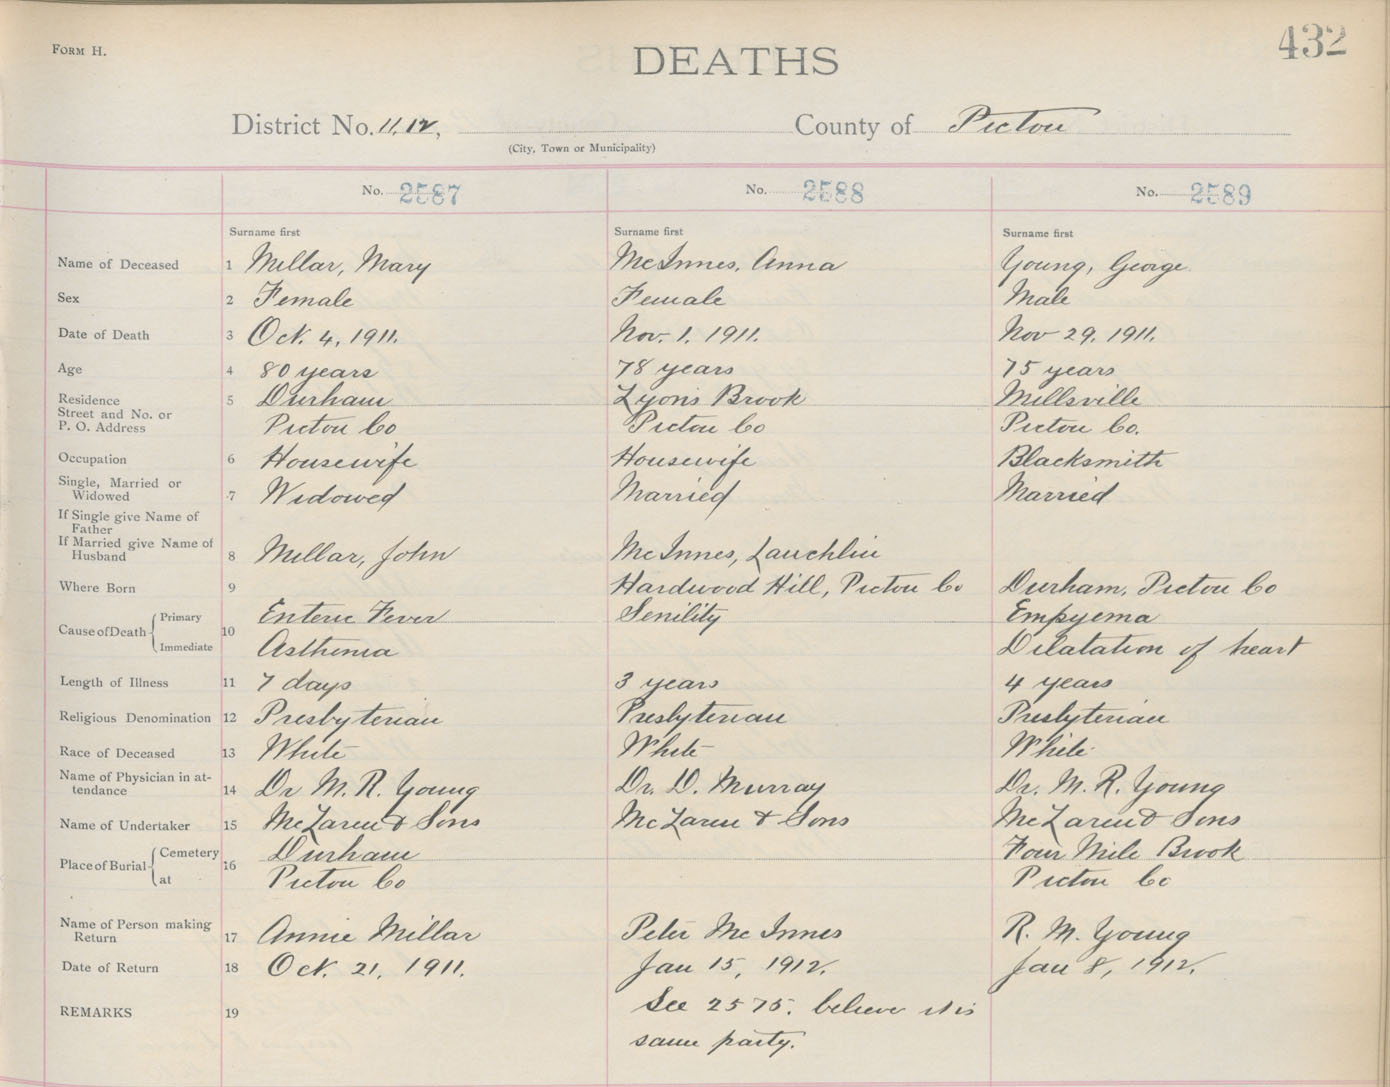 FORM H.
432
DEATHS
District No. 11, 12, County of Pictou
(City, Town or Municipality)
No. 2587 No. 2588 No. 2589
Surname first Surname first Surname first
Name of Deceased 1 Millar, Mary McInnes, Anna Young, George
Sex 2 Female Female Male
Date of Death 3 Oct. 4, 1911. Nov. 1, 1911. Nov 29, 1911.
Age 4 80 years 78 years 75 years
Residence 5 Durham Lyons Brook Millsville
Street and No. or
P. O. Address Pictou Co Pictou Co Pictou Co.
Occupation 6 Housewife Housewife Blacksmith
Single, Married or
Widowed 7 Widowed Married Married
If Single give Name of
Father
If Married give Name of
Husband 8 Millar, John McInnes, Lauchlin
Where Born 9 Hardwood Hill, Pictou Co Durham, Pictou Co
Cause of Death Primary Enteric Fever Senility Empyema
10
Immediate Asthenia Dilatation of heart
Length of Illness 11 7 days 3 years 4 years
Religious Denomination 12 Presbyterian Presbyterian Presbyterian
Race of Deceased 13 White White White
Name of Physician in at-
tendance 14 Dr M. R. Young Dr. D. Murray Dr. M. R. Young
Name of Undertaker 15 McLaren & Sons McLaren & Sons McLaren & Sons
Place of Burial Cemetery 16 Durham Four Mile Brook
at Pictou Co Pictou Co
Name of Person making
Return 17 Annie Millar Peter McInnes R. M. Young
Date of Return 18 Oct. 21, 1911. Jan 15, 1912. Jan 8, 1912.
REMARKS 19 See 2575. believe it is
same party.